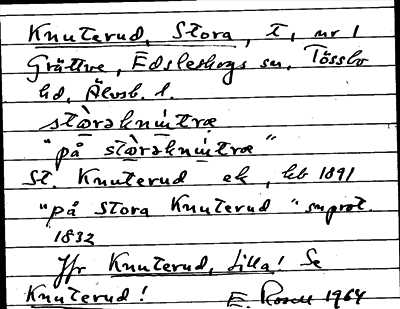 Knuterud, Stora, t, nr 1
Grättve, Edsleskogs sn, Tössbo
hd, Älvsb. l.
stòrəknʉ́træ
"på stòrəknʉ́træ"
St. Knuterud ek, kb 1891
"på Stora Knuterud" snprot.
1832
Jfr Knuterud, Lilla! Se
Knuterud! E. Rosell 1964